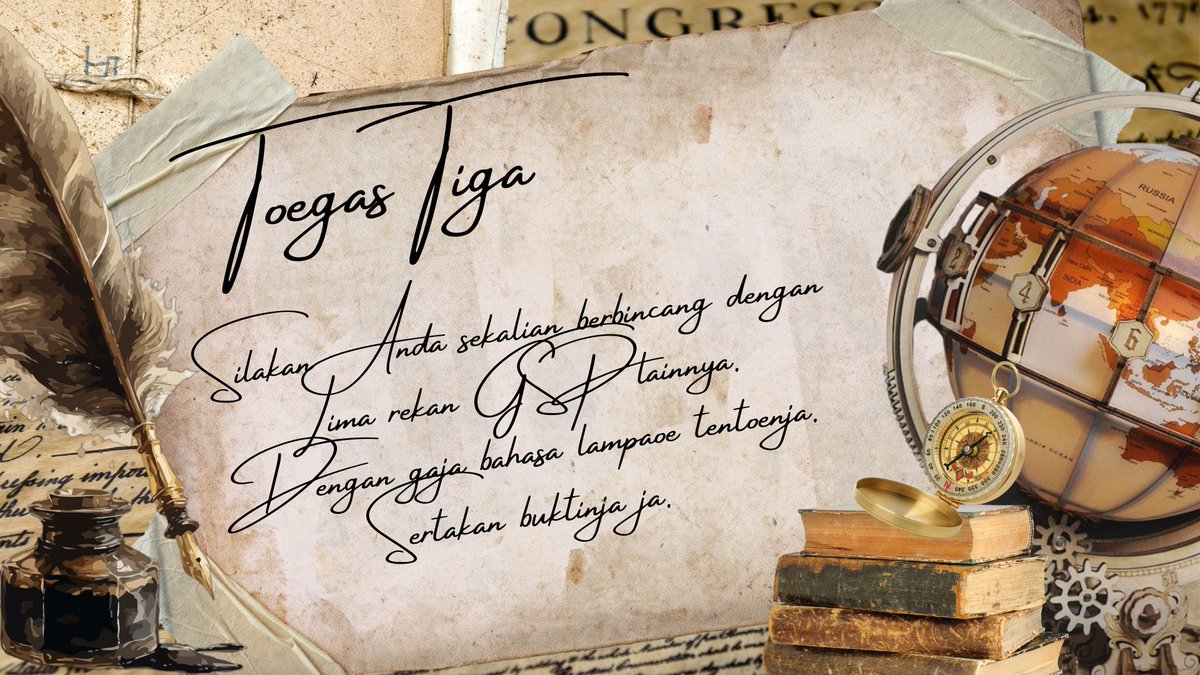 CONGRESS, 4, 1776
Toegas Tiga
Silakan Anda sekalian berbincang dengan
Lima rekan GSP lainnya.
Dengan gaja bahasa lampaoe tentoenja.
Sertakan buktinja ja.
RUSSIA
New Delhi
INDIA
INDIAN OCEAN
2
4
6